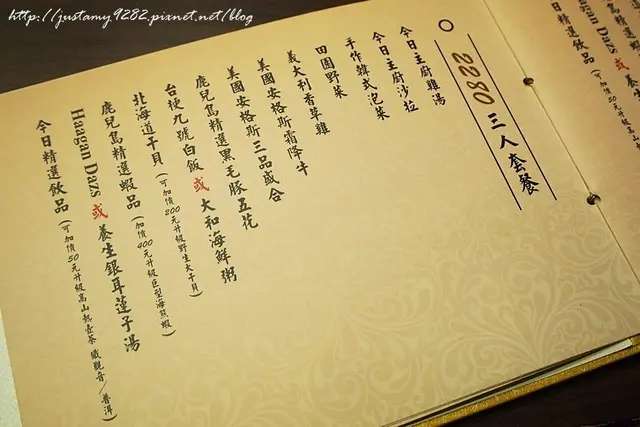 http://justamy9282.pixnet.net/blog
2280 三人套餐
今日主廚雞湯
今日主廚沙拉
手作韓式泡菜
田園野菜
義大利香草雞
美國安格斯霜降牛
美國安格斯三品盛合
鹿兒島精選黑毛豚五花
台梗九號白飯 或 大和海鮮粥
北海道干貝(可加價200元升級野生大干貝)
鹿兒島精選蝦品(加價400元升級巨型海熊蝦)
Haagan Dazs 或 養生銀耳蓮子湯
今日精選飲品(可加價50元升級高山熱壺茶 鐵觀音/普洱)
Haagan Dazs 或 養生
今日精選飲品(可加價50元升級高山